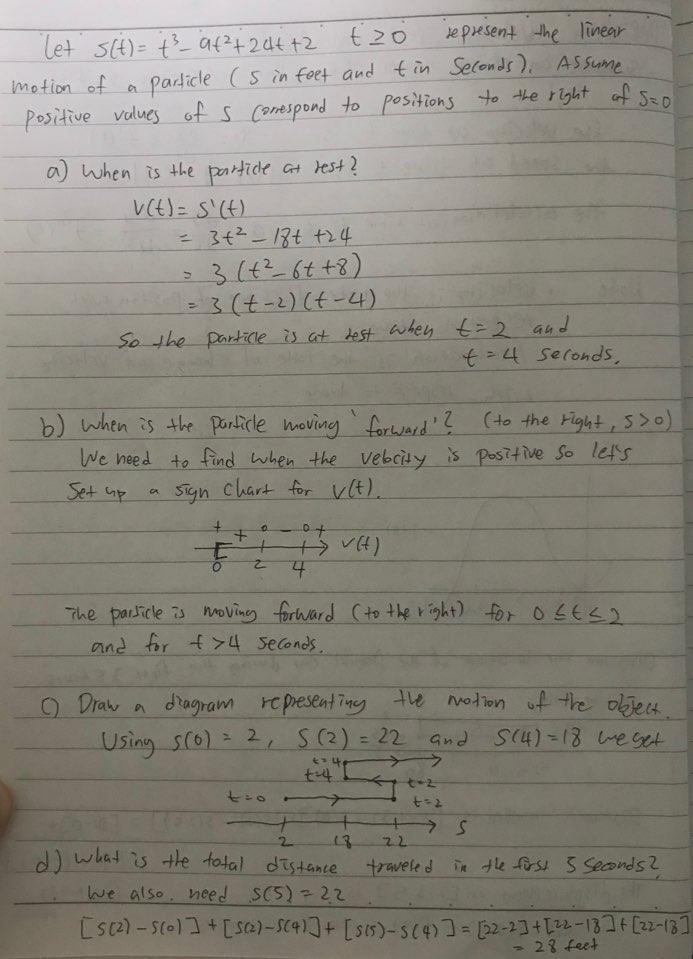 Let s(t) = t³ - 9t² + 24t + 2 t ≥ 0 represent the linear
motion of a particle (s in feet and t in seconds). Assume
positive values of s correspond to positions to the right of s=0
a) When is the particle at rest?
V(t) = s'(t)
= 3t² - 18t + 24
= 3 (t² - 6t + 8)
= 3 (t-2)(t-4)
So the particle is at rest when t=2 and
t=4 seconds.
b) When is the particle moving 'forward'? (to the right, s>0)
We need to find when the velocity is positive so let's
set up a sign chart for v(t).
+ + 0 - 0 +
0 2 4 v(t)
The particle is moving forward (to the right) for 0 ≤ t ≤ 2
and for t > 4 seconds.
c) Draw a diagram representing the motion of the object.
Using s(0) = 2, s(2) = 22 and s(4) = 18 we get
t=4
t=4 t=2
t=0 t=2
2 18 22 s
d) What is the total distance traveled in the first 5 seconds?
We also need s(5) = 22
[s(2)-s(0)] + [s(2)-s(4)] + [s(5)-s(4)] = [22-2]+[22-18]+[22-18]
= 28 feet